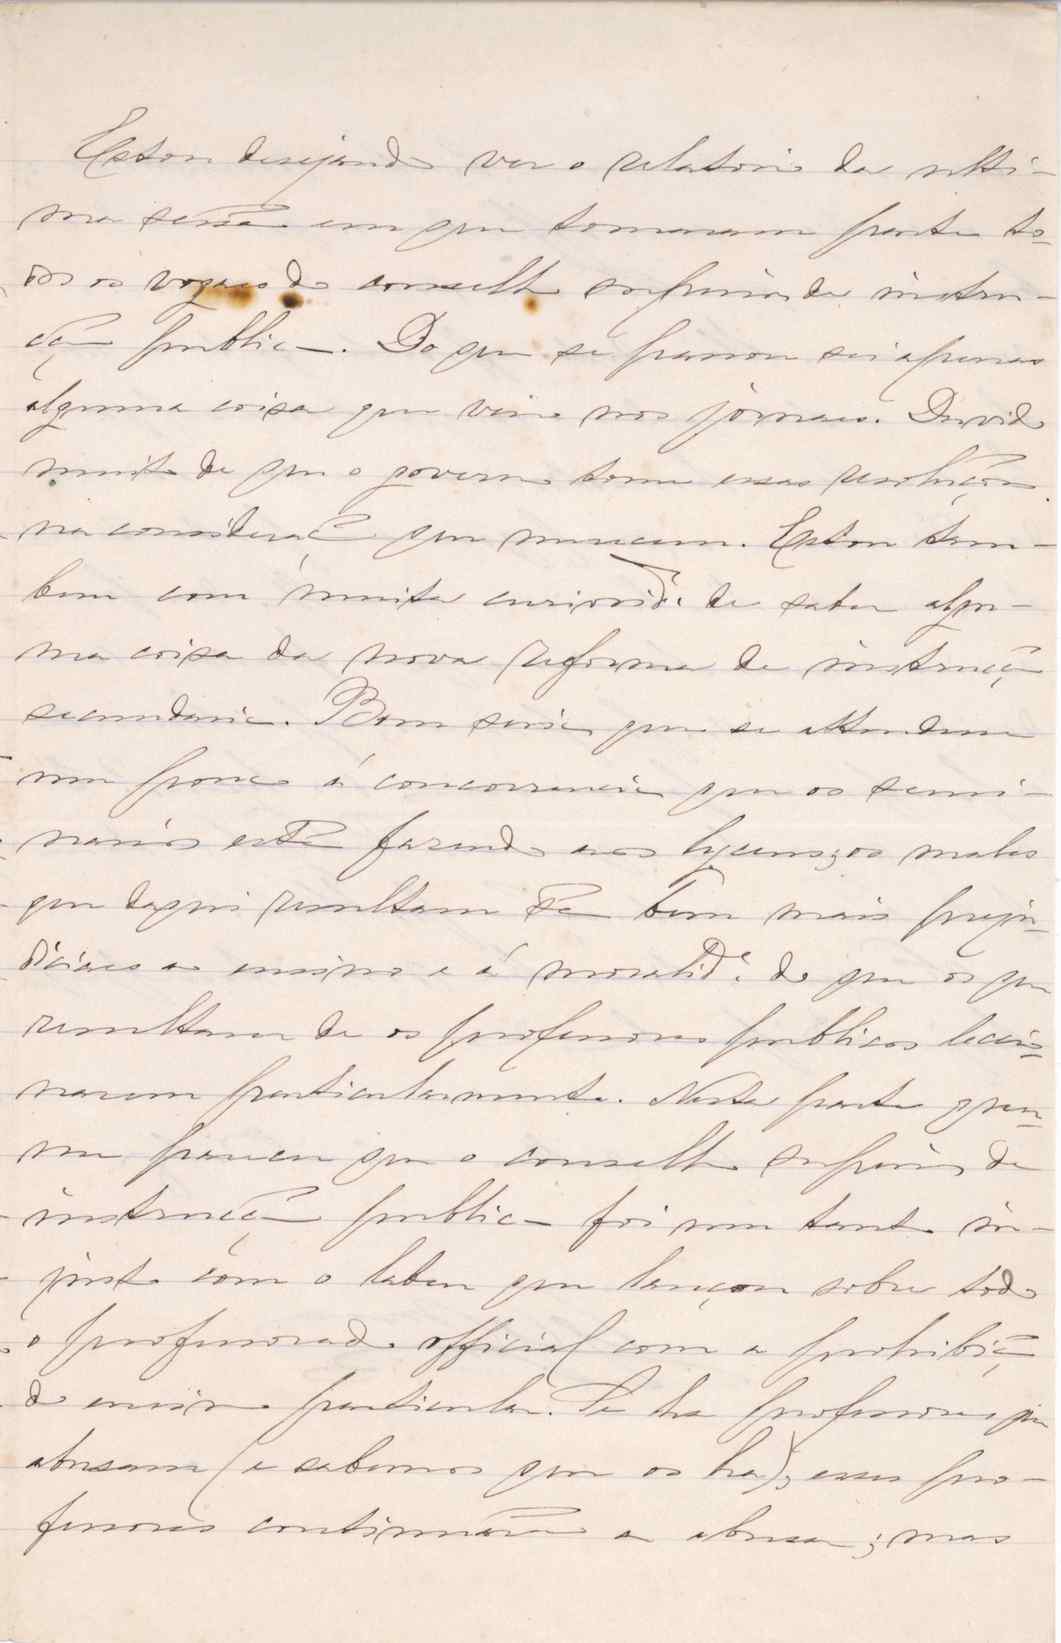 Estou desejando ver o relatorio da ulti-
ma sessão em que tomaram parte to-
dos os vogaes do conselho superior de instru-
cção publica. Do que se passou sei apenas
alguma coisa que vem nos jornaes. Duvido
muito de que o governo tome essas resoluções
na consideração que merecem. Estou tam-
bem com muita curiosid.e de saber algu-
ma coisa da nova reforma de instrucção
secundaria. Bom seria que se attendesse
um pouco á concorrencia que os semi-
narios estão fazendo aos lyceus; os males
que daqui resultam são bem mais preju-
diciaes ao ensino e á moralid.e do que os que
resultam de os professores publicos leccio-
narem particularmente. Nesta parte quer-
me parecer que o conselho superior de
instrucção publica foi um tanto in-
justo com o labeu que lançou sobre todo
o professorado official com a prohibição
do ensino particular. Se ha professores que
abusam (e sabemos que os ha), esses pro-
fessores continuarão a abusar; mas